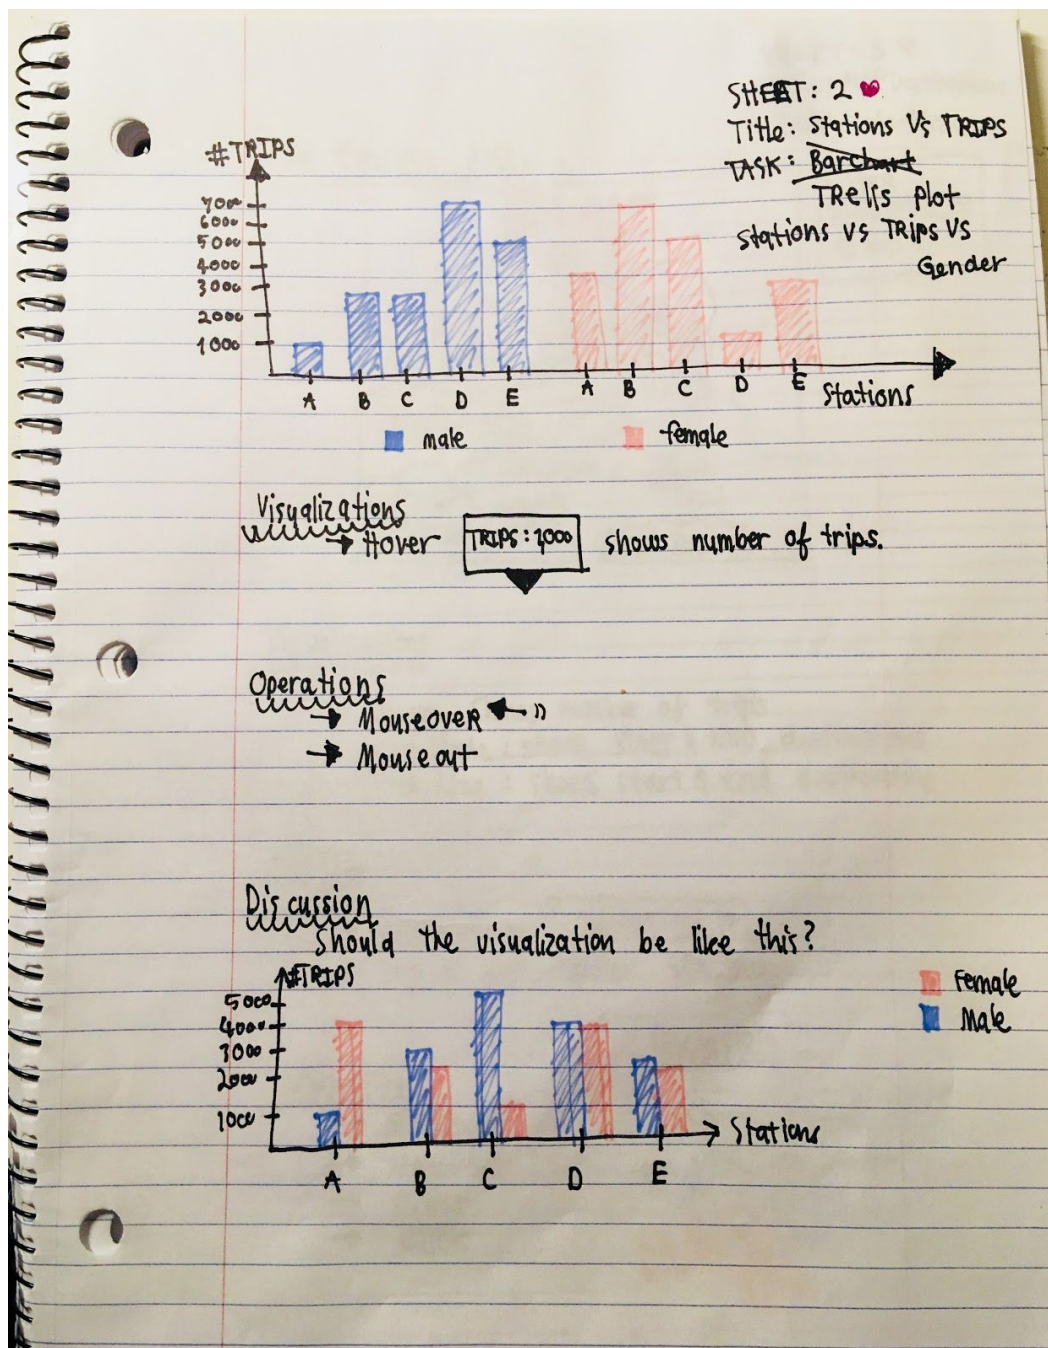 SHEET: 2
Title: Stations Vs TRIPS
TASK: Barchart
TRells plot
Stations vs TRips VS
Gender
#TRIPS
7000
6000
5000
4000
3000
2000
1000
A B C D E A B C D E
Stations
male female
Visualizations
Hover TRIPS: 1000 shows number of trips.
Operations
Mouseover
Mouseout
Discussion
Should the visualization be like this?
#TRIPS
Female
Male
5000
4000
3000
2000
1000
Stations
A B C D E